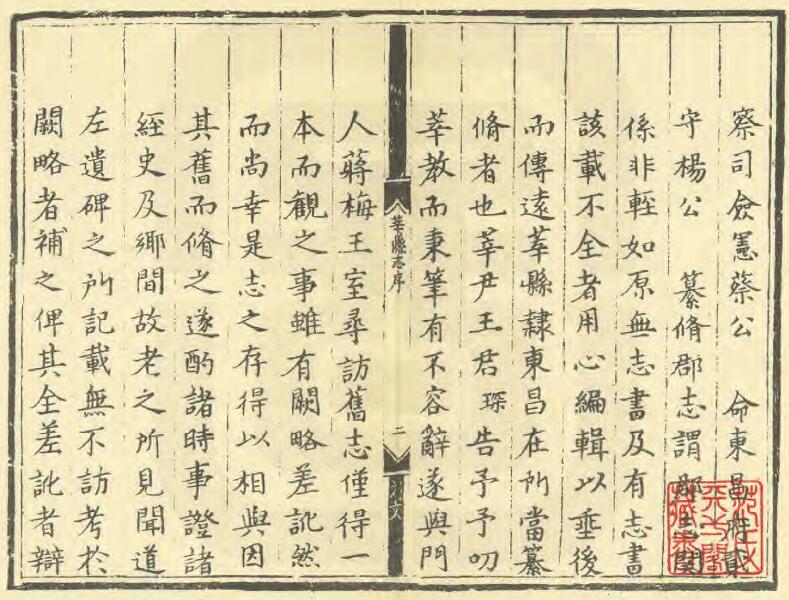 察司僉憲蔡公　命東昌府
守楊公　纂脩郡志謂郡關
係非輕如原無志書及有志書
該載不全者用心編輯以垂後
而傳遠莘縣隸東昌在所當纂
脩者也莘尹王君琛告予予叨
莘教而秉筆有不容辭遂與門
莘縣志序
二
人蔣梅王室尋訪舊志僅得一
本而觀之事雖有闕略差訛然
而尚幸是志之存得以相與因
其舊而脩之遂酌諸時事證諸
經史及鄉間故老之所見聞道
左遺碑之所記載無不訪考於
闕略者補之俾其全差訛者辯